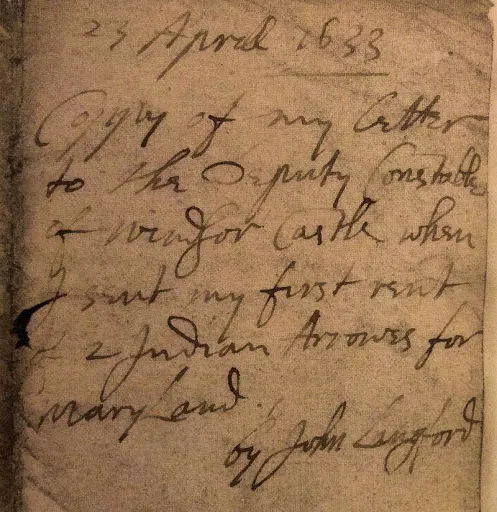 23 Aprill 1633
Coppy of my Letter
to the Deputy Constable
of windsor Castle when
I sent my first rent
of 2 Indian Arrowes for
MaryLand.
by John Langford